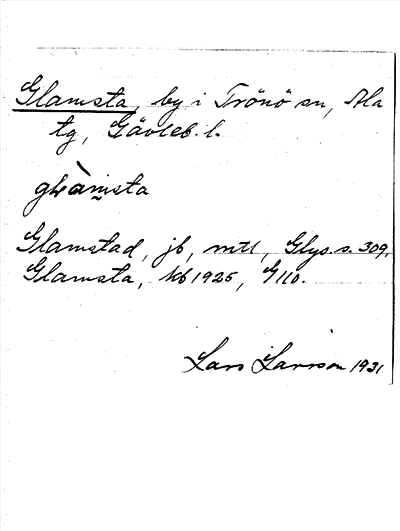 Glamsta, by i Trönö sn, Ala
tg, Gävleb. l.
glàmsta
Glamstad, jb, mtl, Glys. s. 309,
Glamsta, kb 1925, G 110.
Lars Larsson 1931